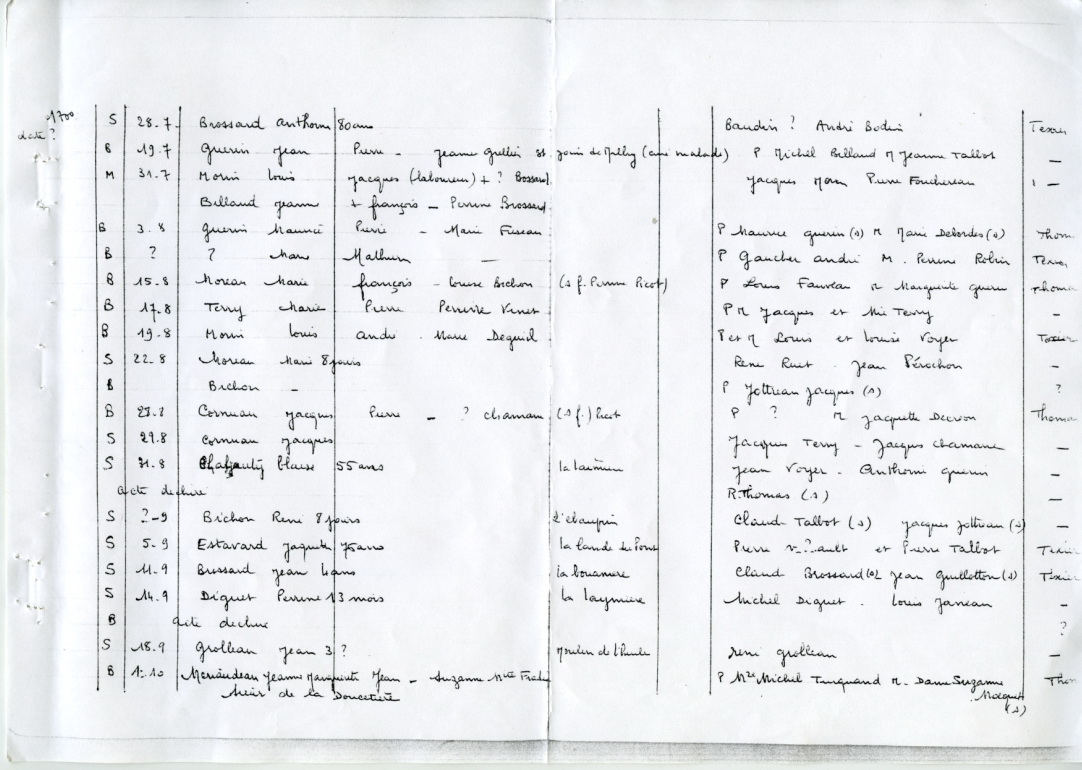 1700
date ?
S 28.7. Brossard anthoine 80 ans Baudin ? André Bodin Texier
B 19.7 Guerin Jean Pierre - Jeanne Grellier St Jouin de Milly (curé malade) P Michel Billaud M Jeanne Talbot —
M 31.7 Morin Louis Jacques (laboureur) + ? Bossard. Jacques Morin Pierre Fouchereau —
Billaud Jeanne + françois - Perrine Brossard
B 3.8 Guerin Maurice Pierre - Marie Fuseau P Maurice guerin (s) M Marie Debordes (s) Thom
B ? ? Marie Mathurin — P Gaucher andré M. Perrine Robin Texier
B 15.8 Moreau Marie françois - Louise Bichon (s f. Perrine Picot) P Louis Fauveau M Marguerite guerin Thoma
B 17.8 Terry Marie Pierre Perrine Vinet P M Jacques et Mie Terry -
B 19.8 Morin Louis andré . Marie Deguil P et M Louis et Louise Voyer Texier
S 22.8 Moreau Marie 8 jours René Ruet . Jean Pérochon -
B Bichon - P Jottreau Jacques (s) ?
B 27.8 Cornuau Jacques Pierre - ? chamau (s f.) Picot P ? M Jacquette Decron Thoma
S 29.8 Cornuau Jacques Jacques Terry - Jacques Chamane —
S 31.8 blaise 55 ans Jean Voyer . Anthoine guerin —
acte déchiré R.Thomas (s) —
S ?-9 Bichon René 8 jours L'ebaupin Claude Talbot (s) Jacques Jottreau (s) —
S 5.9 Estavard Jaquette 75 ans la lande du Pont Pierre ?ault et Pierre Talbot Texier
S 11.9 Brossard Jean 4 ans la Claude Brossard Jean Guillotton (s) Texier
S 14.9 Diguet Perrine 13 mois la Michel Diguet . Louis Janeau -
B acte déchiré ?
S 18.9 Grolleau Jean 3 ? Moulin de rené grolleau —
B 1.10 Jeanne Marguerite Jean - Suzanne P Mre Michel Turquand M. Dame Suzanne Thom
de la Doucetière (s)